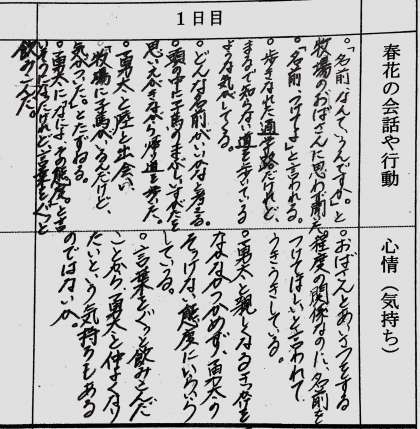 1日目
春花の会話や行動
。「名前、なんていうんですか。」と
牧場のおばさんに思わず聞いた。
。「名前、つけてよ」と言われる。
。歩きなれた通学路だけれど、
まるで知らない道を歩いている
ような気がしている。
。どんな名前がいいかな考える。
。頭の中に子馬のまなざしやすがたを
思いえがきながら帰り道を歩いた。
。勇太と陸と出会い、
「牧場に子馬がいるんだけど、
気がついた。」とたずねる。
。勇太に「なによ、その態度」と言
そうになったけれど、言葉をぐっと
飲みこんだ。
心情（気持ち）
。おばさんとあいさつをする
程度の関係なのに、名前を
つけてほしいと言われて
うきうきしている。
。勇太と親しくなるきっかけを
なかなかつかめず、勇太の
そっけない態度にいらいら
している。
。言葉をぐっと飲みこんだ
ことから、勇太と仲よくなり
たいという気持ちもある
のではないか。